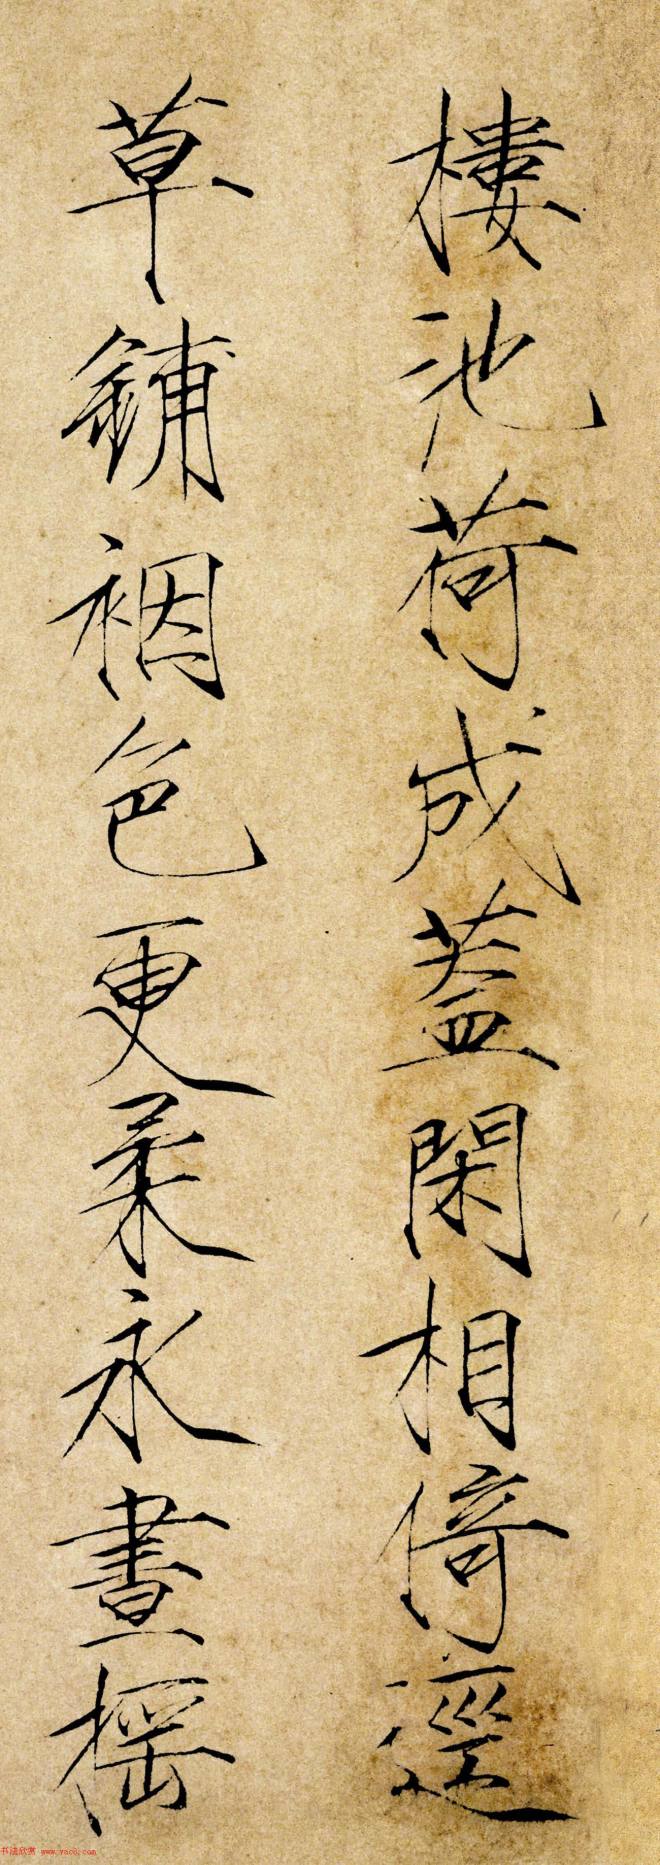 樓池荷成蓋閑相倚逕
草鋪裀色更柔永晝揺
书法欣赏 www.yac8.com